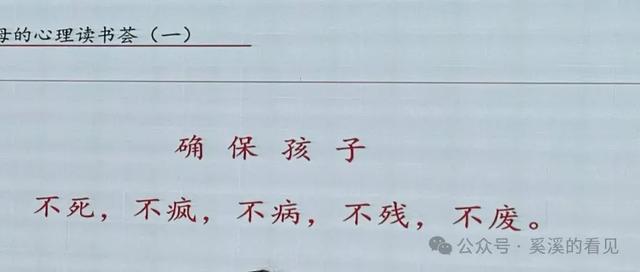 母的心理读书荟（一）
确保孩子
不死，不疯，不病，不残，不废。
公众号·奚溪的看见